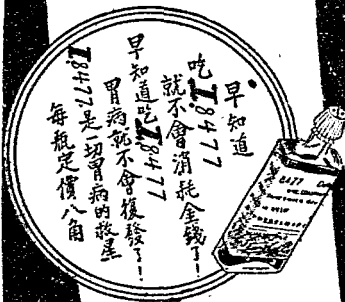 早知道
吃I.8477
就不會消耗金錢了！
早知道吃I.8477
胃病就不會復發了！
I.8477是一切胃病的救星
每瓶定價八角
8477